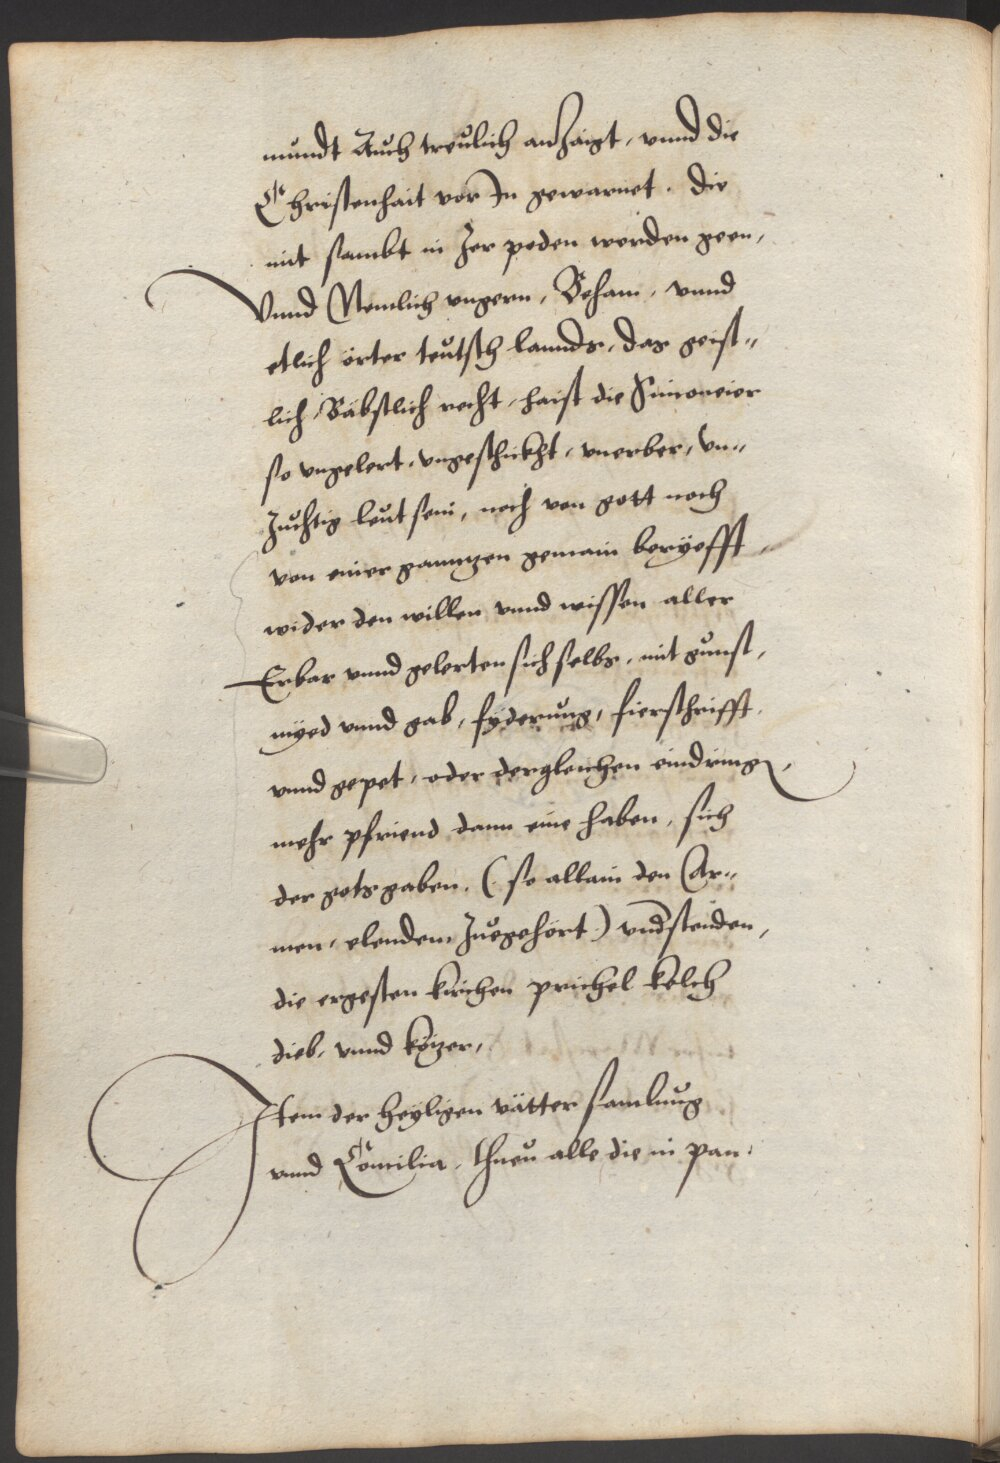 mundt Auch treulich anzaigt, vnnd die
Christenhait vor In gewarnet. die
mit sambt in Jer peden werden geen,
Vnnd Nemlich vngern, Beham, vnnd
etlich örter teutsch lannds, das geist-
lich, Bäbstlich recht, haist die Simoneier
so vngelert, vngeschickht, vnerber, vn-
zuchtig leut sein, noch von gott noch
von einer ganntzen gemain beryefft,
wider den willen vnnd wissen aller
Erbar vnnd gelerten sich selbs, mit gunst,
myed vnnd gab, fyderung, fierschrifft,
vnnd gepet, oder dergleichen eindringen,
mehr pfriend dann eine haben, sich
der gotsgaben. (so allain den Ar-
men, elendem zuegehört) vndsteńden,
die ergesten kirchen prichel kelch
dieb, vnnd közer,
Item der heyligen vätter samlung
vnnd Concilia, thuen alle die in pan